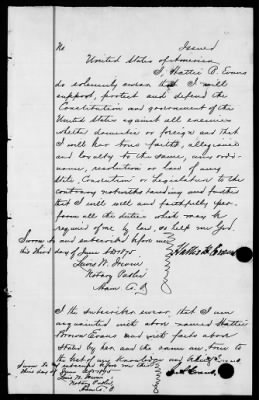 No Issued
United States of America
I, Hattie B. Evans
do solemnly swear that I will
support, protect and defend the
Constitution and government of the
United States against all enemies
whether domestic or foreign and that
I will bear true faith, allegiance
and loyalty to the same, any ordi-
nance, resolution or law of any
State, Constitution or Legislature to the
contrary notwithstanding and further
that I will well and faithfully per-
form all the duties which may be
required of me by law, so help me God.
Sworn to and subscribed before me
this third day of June
Hattie B. Evans
Notary Public
I the subscriber swear, that I am
acquainted with above named Hattie
Brown Evans and with facts above
stated by her and the same are true to
the best of my knowledge and belief
Sworn to and subscribed before me this
third day of June
Notary Public